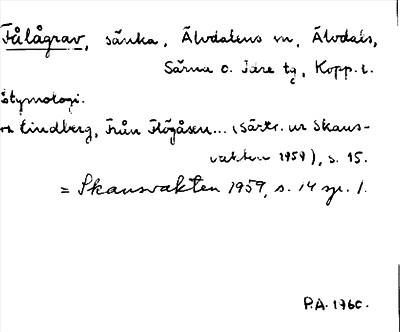 Fålågrav, sänka, Älvdalens sn, Älvdals,
Särna o. Idre tg, Kopp. l.
Etymologi.
Lindberg, Från Flögåsen... (Särtr. ur Skans-
vakten 1959), s. 15.
= Skansvakten 1959, s. 14 sp. 1.
P.A. 1960.